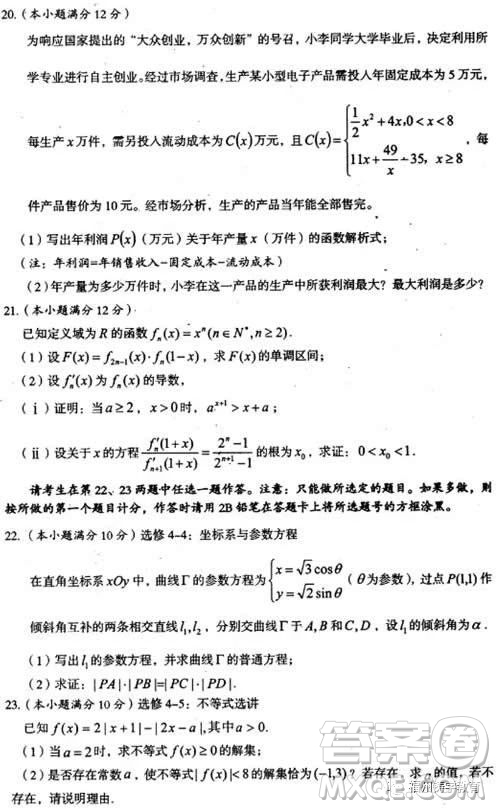 20.(本小题满分12分)
为响应国家提出的“大众创业，万众创新”的号召，小李同学大学毕业后，决定利用所
学专业进行自主创业。经过市场调查，生产某小型电子产品需投入年固定成本为5万元，
每生产x万件，需另投入流动成本为C(x)万元，且C(x)={ 1/2 x²+4x, 0<x<8
11x+49/x-35, x≥8 ，每
件产品售价为10元。经市场分析，生产的产品当年能全部售完。
(1)写出年利润P(x)(万元)关于年产量x(万件)的函数解析式；
(注：年利润=年销售收入-固定成本-流动成本)
(2)年产量为多少万件时，小李在这一产品的生产中所获利润最大？最大利润是多少？
21.(本小题满分12分)
已知定义域为R的函数fₙ(x)=xⁿ(n∈N*, n≥2).
(1)设F(x)=f₂ₙ₋₁(x)·fₙ(1-x)，求F(x)的单调区间；
(2)设fₙ′(x)为fₙ(x)的导数，
(ⅰ)证明：当a≥2，x>0时，aˣ⁺¹>x+a；
(ⅱ)设关于x的方程 fₙ′(1+x)/fₙ₊₁′(1+x)=(2ⁿ-1)/(2ⁿ⁺¹-1) 的根为x₀，求证：0<x₀<1.
请考生在第22、23两题中任选一题作答。注意：只能做所选定的题目。如果多做，则
按所做的第一个题目计分，作答时请用2B铅笔在答题卡上将所选题号的方框涂黑。
22.(本小题满分10分)选修4-4：坐标系与参数方程
在直角坐标系xOy中，曲线Γ的参数方程为{ x=√3cosθ
y=√2sinθ (θ为参数)，过点P(1,1)作
倾斜角互补的两条相交直线l₁,l₂，分别交曲线Γ于A,B和C,D，设l₁的倾斜角为α.
(1)写出l₁的参数方程，并求曲线Γ的普通方程；
(2)求证：|PA|·|PB|=|PC|·|PD|.
23.(本小题满分10分)选修4-5：不等式选讲
已知f(x)=2|x+1|-|2x-a|,其中a>0.
(1)当a=4时，求不等式f(x)≥0的解集；
(2)是否存在常数a，使得不等式|f(x)|<8的解集恰为(-1,3)？若存在，求a的值，若不
存在，请说明理由.
答案圈